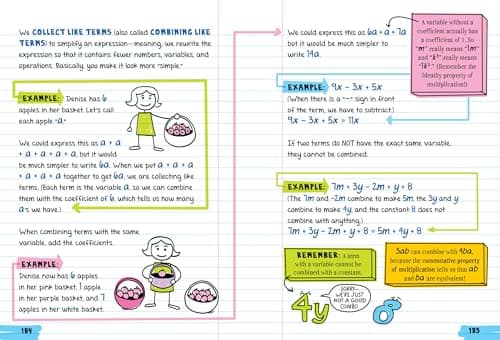 We COLLECT LIKE TERMS (also called COMBINING LIKE
TERMS) to simplify an expression—meaning, we rewrite
the expression so that it contains fewer numbers, variables, and
operations. Basically, you make it look more "simple."
EXAMPLE: Denise has 6
apples in her basket. Let's call
each apple "a."
We could express this as a + a
+ a + a + a + a, but it would
be much simpler to write 6a. When we put a + a + a
+ a + a + a together to get 6a, we are collecting like
terms. (Each term is the variable a, so we can combine
them with the coefficient of 6, which tells us how many
a's we have.)
When combining terms with the same
variable, add the coefficients.
EXAMPLE:
Denise now has 6 apples
in her pink basket, 1 apple
in her purple basket, and 7
apples in her white basket.
184
We could express this as 6a + a + 7a
but it would be much simpler to
write 14a.
A variable without a
coefficient actually has
a coefficient of 1. So
"m" really means "1m"
and
really means
(Remember the
identity property of
multiplication!)
EXAMPLE: 9x - 3x + 5x
(When there is a "-" sign in front
of the term, we have to subtract.)
9x - 3x + 5x = 11x
If two terms do NOT have the exact same variable,
they cannot be combined.
EXAMPLE: 7m + 3y - 2m + y + 8
(The 7m and -2m combine to make 5m, the 3y and y
combine to make 4y, and the constant 8 does not
combine with anything.)
7m + 3y - 2m + y + 8 = 5m + 4y + 8
REMEMBER: A term
with a variable cannot be
combined with a constant.
3ab can combine with 4ba,
because the commutative property
of multiplication tells us that ab
and ba are equivalent!
SORRY—
WE'RE JUST
NOT A GOOD
COMBO.
4y
8
185